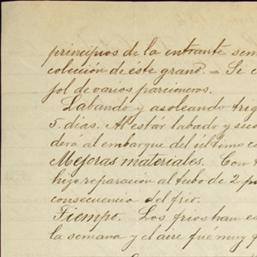 principios de la entrante sem
colección de éste grano. = Se c
jol de varios parcioneros.
Labando y asoleando trig
5. dias. Al estár labado y seco
derá al embarque del último c
Mejoras materiales. Con t
hizo reparación al tubo de 2 pu
consecuencia del frio.
Tiempo. Los frios han es
la semana y el aire fué muy f